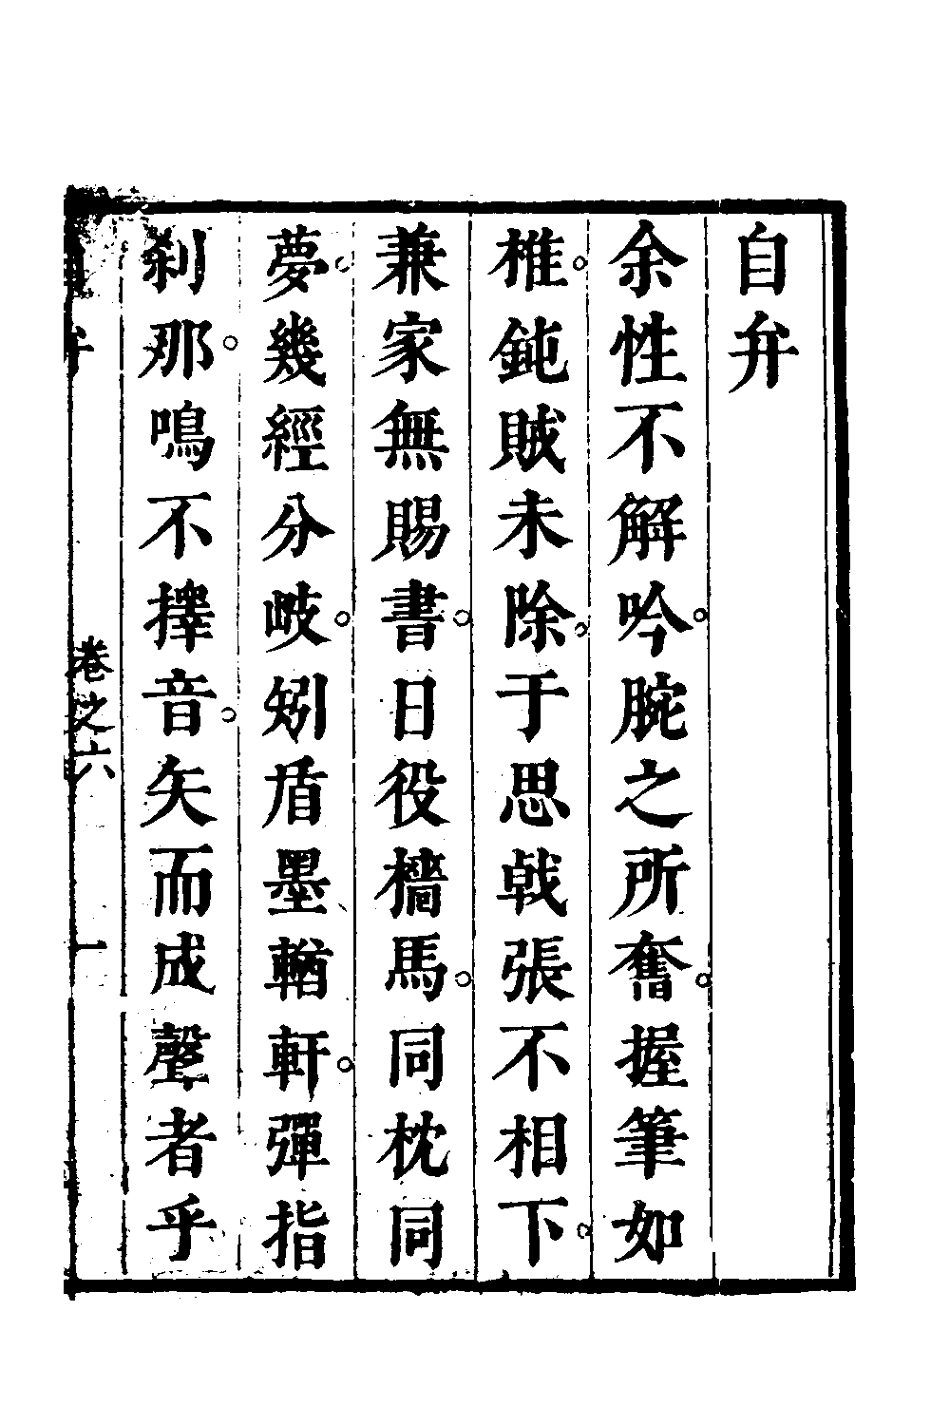 自弁
余性不解吟。腕之所奮。握筆如
椎。鈍賊未除。于思戟張不相下。
兼家無賜書。日役檣馬。同枕同
夢。幾經分岐。矧盾墨輶軒。彈指
刹那。鳴不擇音。矢而成聲者乎
卷之六
一